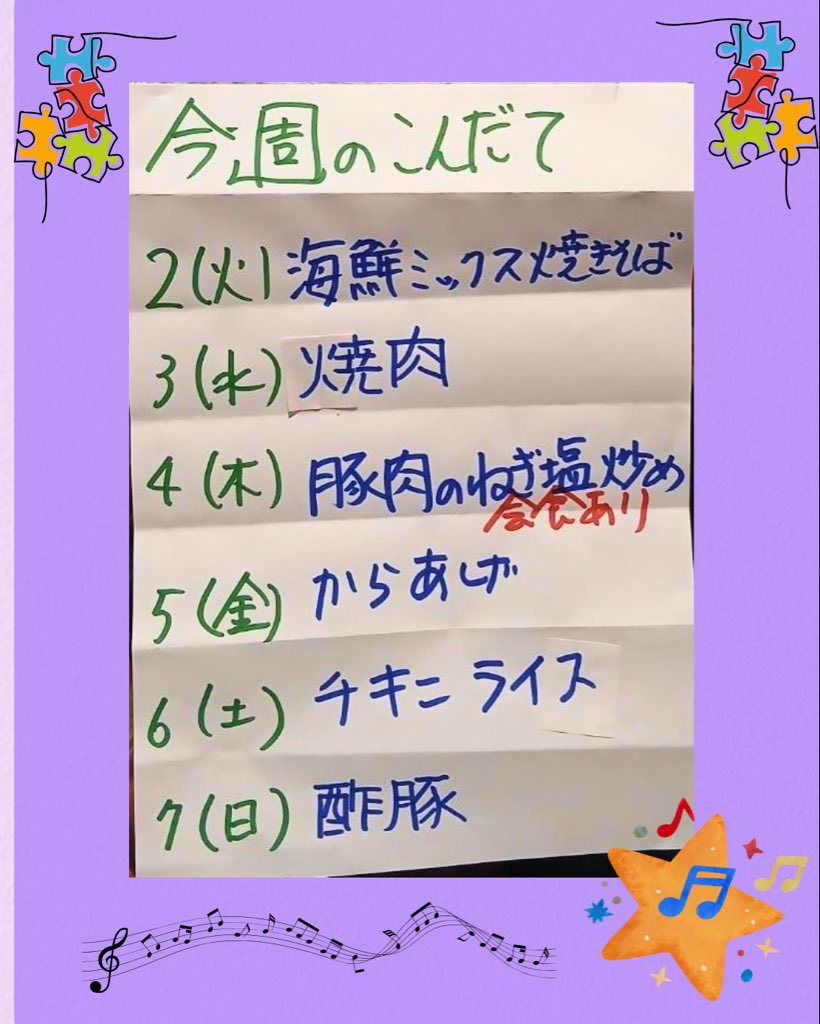 今週のこんだて
2(火) 海鮮ミックス焼きそば
3(水) 焼肉
4(木) 豚肉のねぎ塩炒め
会食あり
5(金) からあげ
6(土) チキニライス
7(日) 酢豚